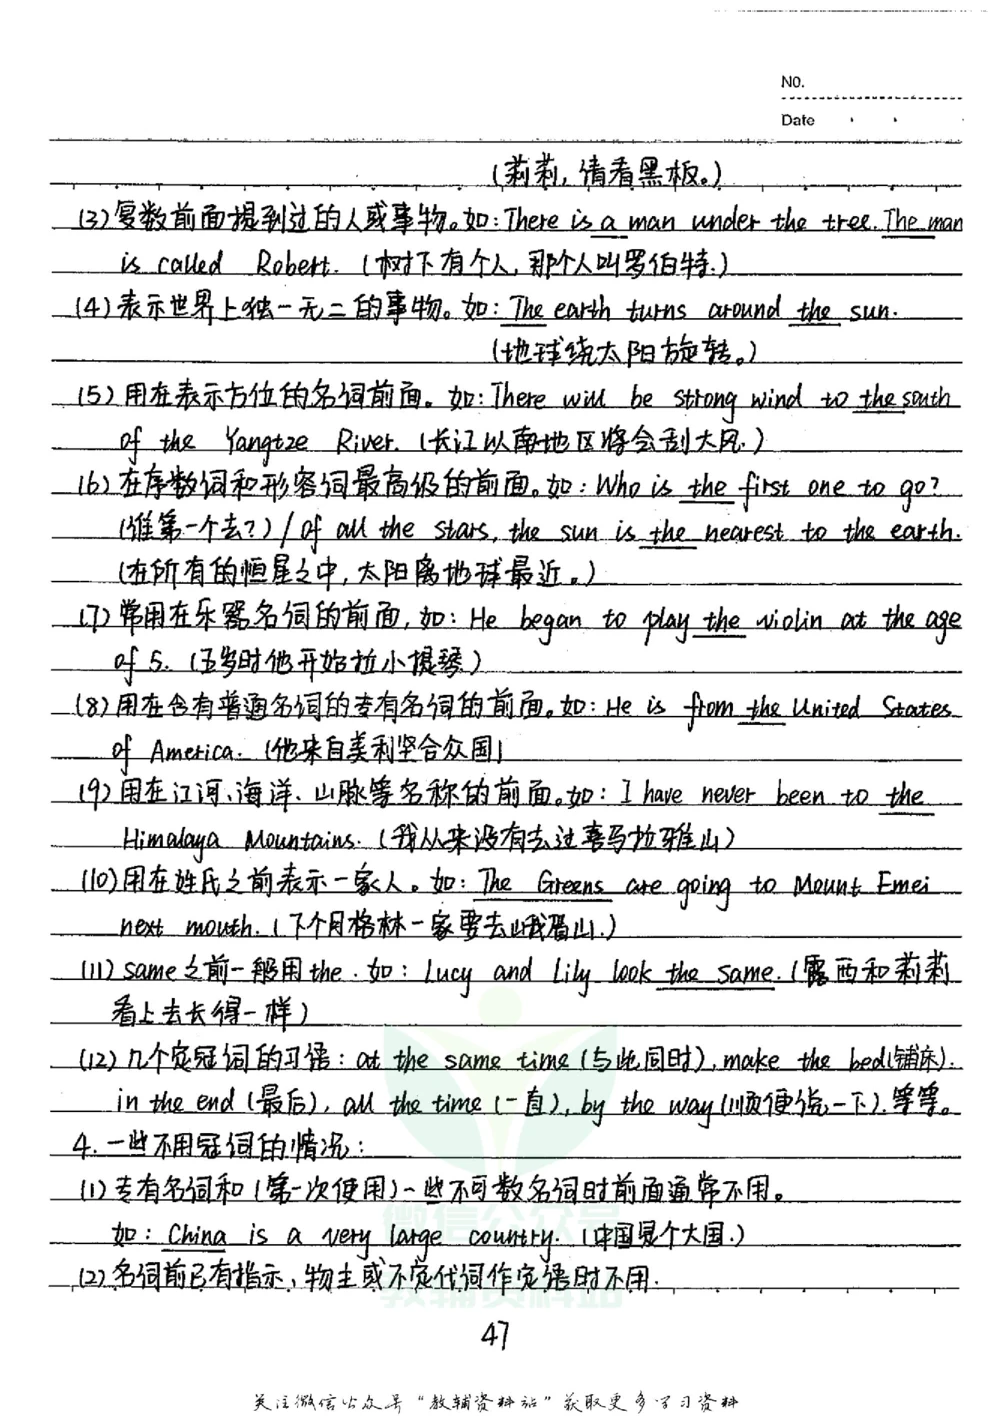 NO.
Date
(莉莉,请看黑板。)
(3)复数前面提到过的人或事物。如:There is a man under the tree. The man
is called Robert. (树下有个人,那个人叫罗伯特.)
(4)表示世界上独一无二的事物。如:The earth turns around the sun.
(地球绕太阳旋转。)
(5)用在表示方位的名词前面。如:There will be strong wind to the south
of the Yangtze River. (长江以南地区将会刮大风.)
(6)在序数词和形容词最高级的前面。如:Who is the first one to go?
(谁第一个去?)/Of all the stars, the sun is the nearest to the earth.
(在所有的恒星之中,太阳离地球最近。)
(7)常用在乐器名词的前面,如:He began to play the violin at the age
of 5. (五岁时他开始拉小提琴)
(8)用在含有普通名词的专有名词的前面。如:He is from the United States
of America. (他来自美利坚合众国)
(9)用在江河、海洋、山脉等名称的前面。如:I have never been to the
Himalaya Mountains. (我从来没有去过喜马拉雅山)
(10)用在姓氏之前表示一家人。如:The Greens are going to Mount Emei
next mouth. (下个月格林一家要去峨眉山.)
(11) same之前一般用the.如:Lucy and Lily look the same. (露西和莉莉
看上去长得一样)
(12)几个定冠词的习语:at the same time (与此同时), make the bed(铺床).
in the end (最后), all the time (一直), by the way (顺便说一下).等等。
4.一些不用冠词的情况:
(1)专有名词和(第一次使用)一些不可数名词时前面通常不用。
如:China is a very large country. (中国是个大国.)
(2)名词前已有指示、物主或不定代词作定语时不用.
微信公众号
教辅资料站
47
关注微信公众号“教辅资料站”获取更多学习资料